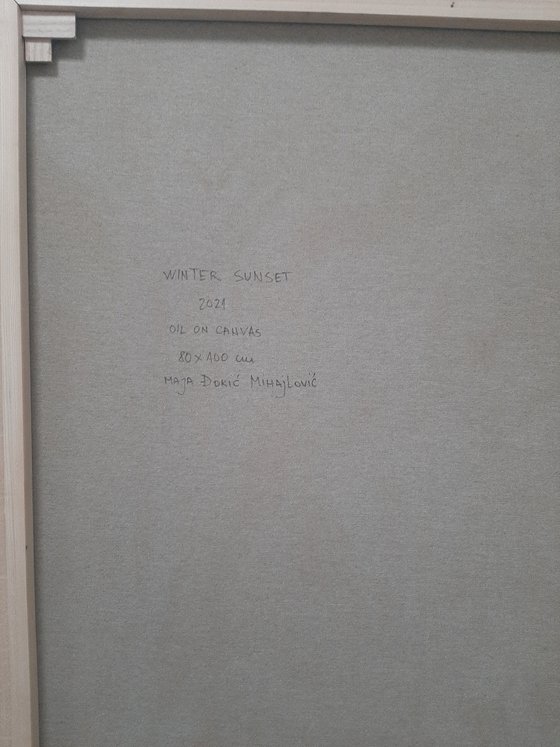 WINTER SUNSET
2021
OIL ON CANVAS
80 x 100 cm
MAJA ĐOKIĆ MIHAJLOVIĆ